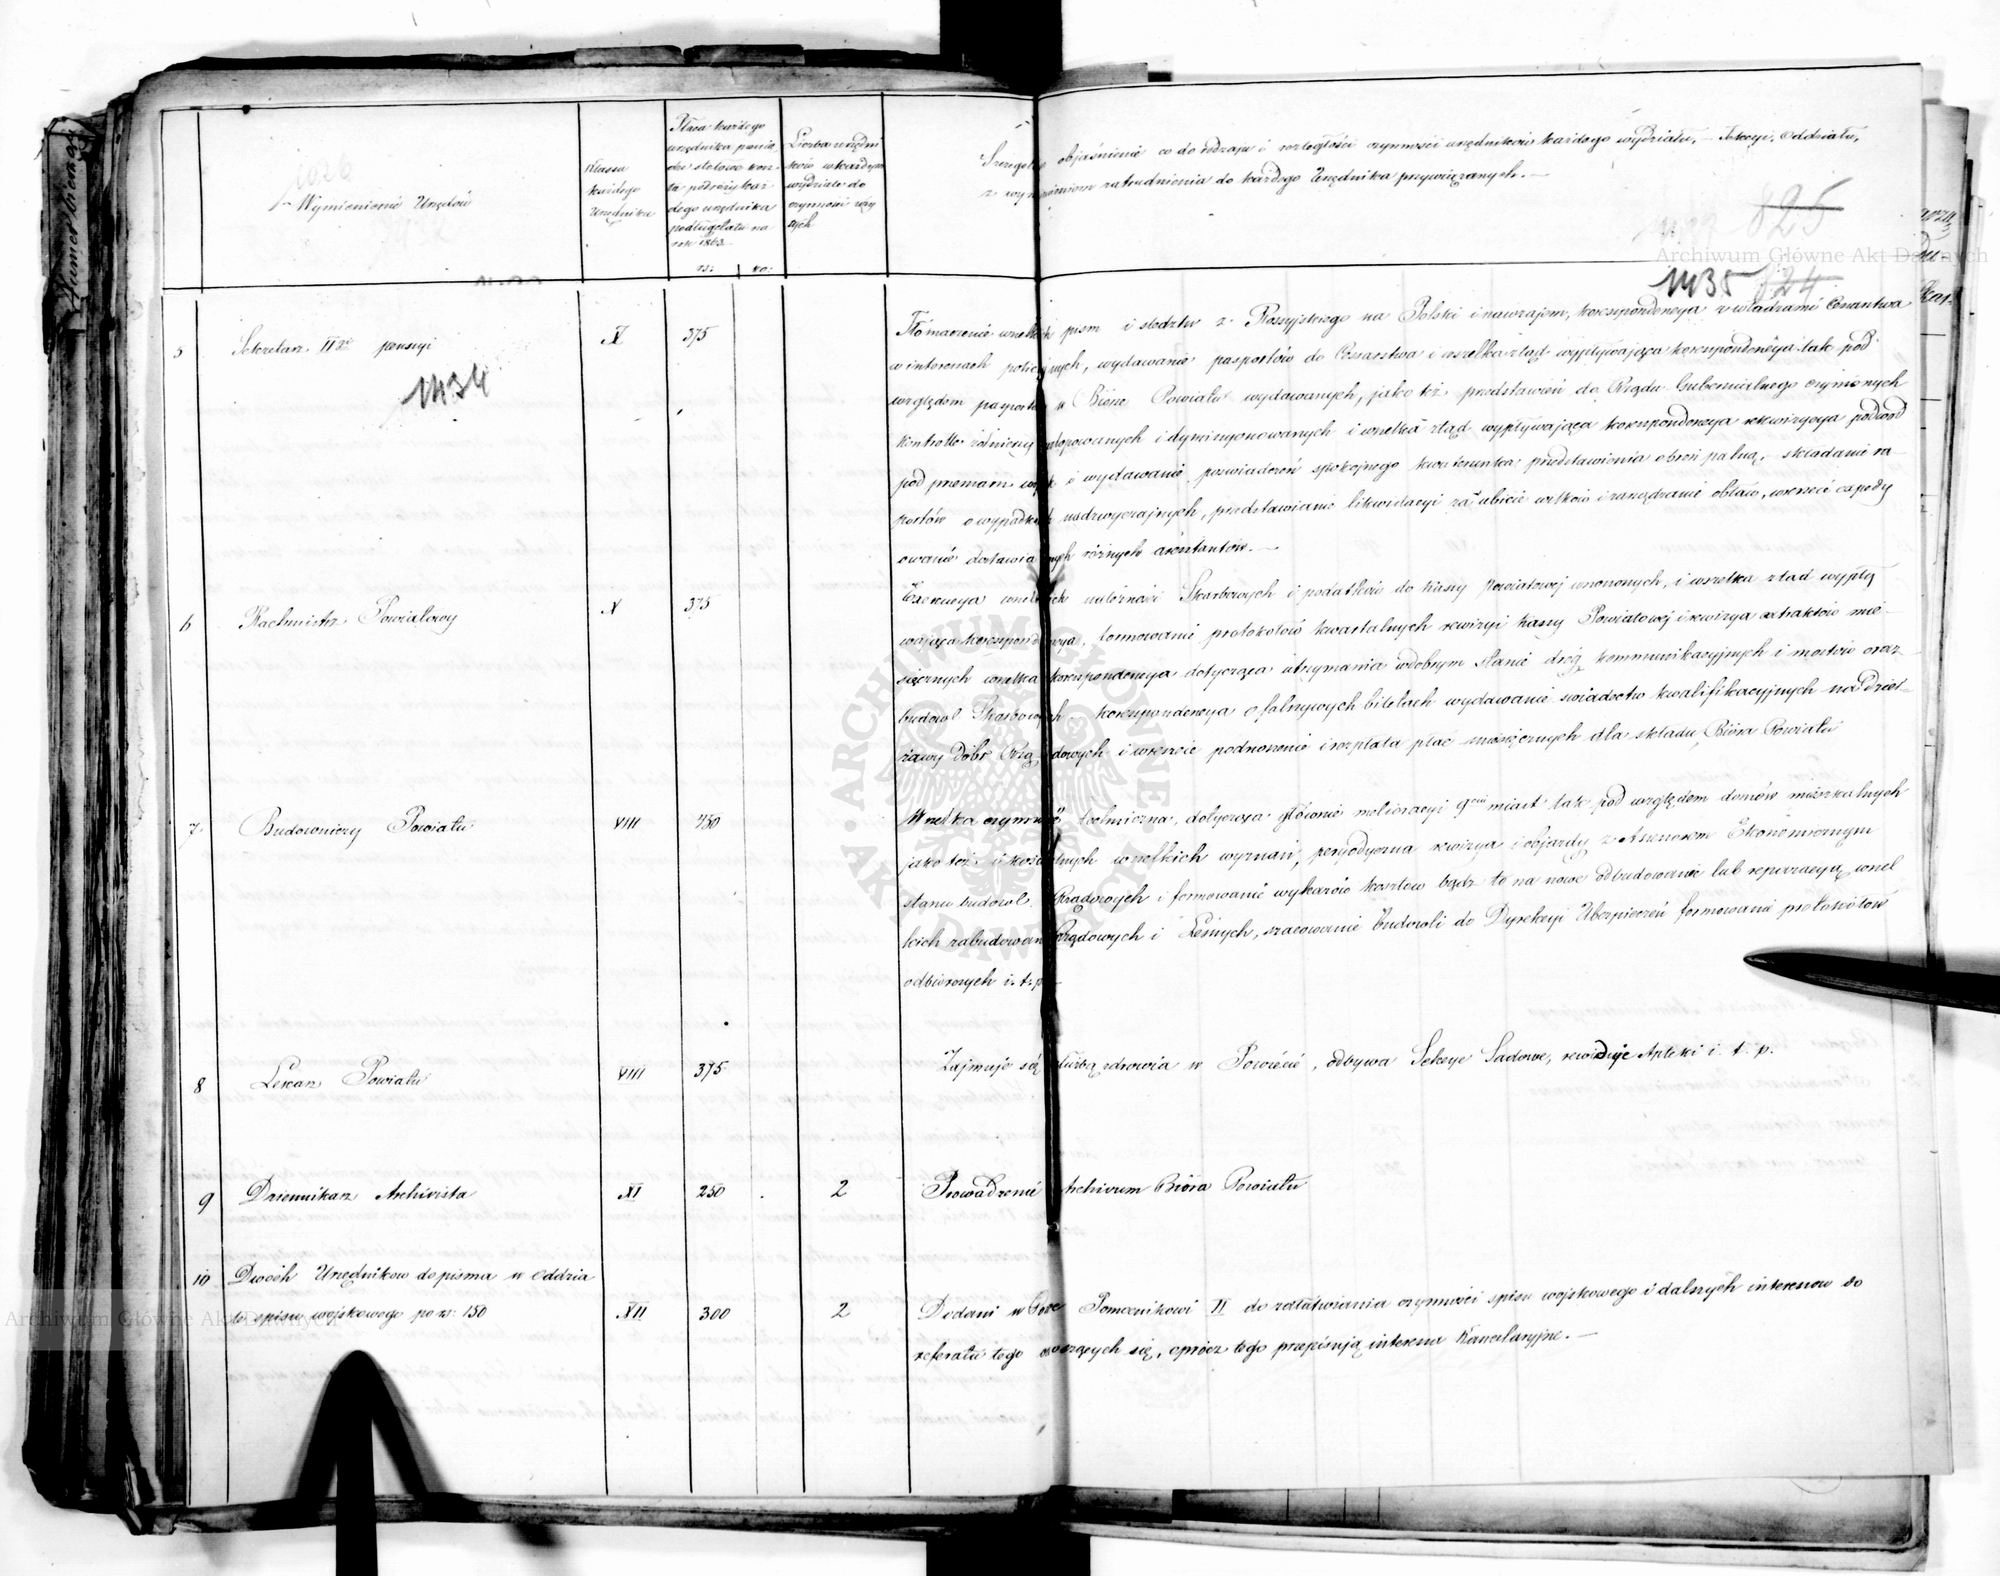 Wymienienie Urzędów
Klassa
każdego
Urzędnika
Płaca każdego
urzędnika
dego urzędnika
podług etatu na
rok 1863.
rs: ko:
Liczba urzędni
ków w każdym
wydziale do
czynności uży
tych
objaśnienie co do rodzaju i rozległości czynności urzędników każdego wydziału, – Sekcyi, Oddziału,
zatrudnienia do każdego Urzędnika przywiązanych. —
825
1435 824
5 Sekretarz II pensyi X 375
1434
Tłómaczenie pism i śledztw z Rossyjskiego na Polski i nawzajem, korespondencya z władzami Cesarstwa
w interesach policyjnych, wydawanie pasportów do Cesarstwa i wszelka ztąd wypływająca korespondencya tak pod
względem w Biórze Powiatu wydawanych, jako też przedstawień do Rządu Gubernialnego czynionych
i dymisyonowanych i wszelka ztąd wypływająca korespondencya rekwizycya podwod
pod i wydawanie poświadczeń spokojnego przedstawienia o broń palną, składanie ra
portów o wypadkach nadzwyczajnych, przedstawianie likwidacyi za ubicie wilków i zarządzanie obław, wreszcie expedy
owanie różnych aresztantów. —
6 Rachmistrz Powiatowy X 375
Exekucya należności Skarbowych i podatków do kassy Powiatowej wnoszonych, i wszelka ztąd wypły
wająca korespondencya, formowanie protokołów kwartalnych rewizyi kassy Powiatowej i rewizya extraktów mie–
sięcznych wszelka korespondencya dotycząca utrzymania w dobrym stanie dróg kommunikacyjnych i mostów oraz
budowl Skarbowych – korespondencya o fałszywych biletach wydawanie świadectw kwalifikacyjnych na dzier–
żawy Dóbr Rządowych i wreszcie podnoszenie i rozpłata płac miesięcznych dla składu Bióra Powiatu
7 Budowniczy Powiatu VIII 450
Wszelka czynność techniczna, dotycząca głównie melioracyi miast tak pod względem domów mieszkalnych
jako też i wszelkich wyznań, peryodyczna rewizya i objazdy z Assessorem Ekonomicznym
stanu budowl Rządowych i formowanie wykazów kosztów bądz to na nowe odbudowanie lub reperacyą wszel
kich zabudowań Rządowych i Leśnych, szacowanie budowli do Dyrekcyi Ubezpieczeń formowanie protokółów
odbiorczych i. t. p.
8 Lekarz Powiatu VIII 375
Zajmuje się służbą zdrowia w Powiecie, odbywa Sekcye Sądowe, rewiduje Apteki i. t. p.
9 Dziennikarz Archivista XI 250 2
Prowadzenie Archivum Bióra Powiatu
10 Dwóch Urzędników do pisma w Oddzia
le spisu wojskowego po rs: 150 XII 300 2
Dodani w Pomocnikowi II do załatwiania czynności spisu wojskowego i dalszych interessów do
referatu tego się, oprócz tego przepisują interessa Kancelaryjne. —
Archiwum Główne Akt Dawnych
ARCHIWUM GŁÓWNE AKT DAWNYCH
Archiwum Główne Akt Dawnych